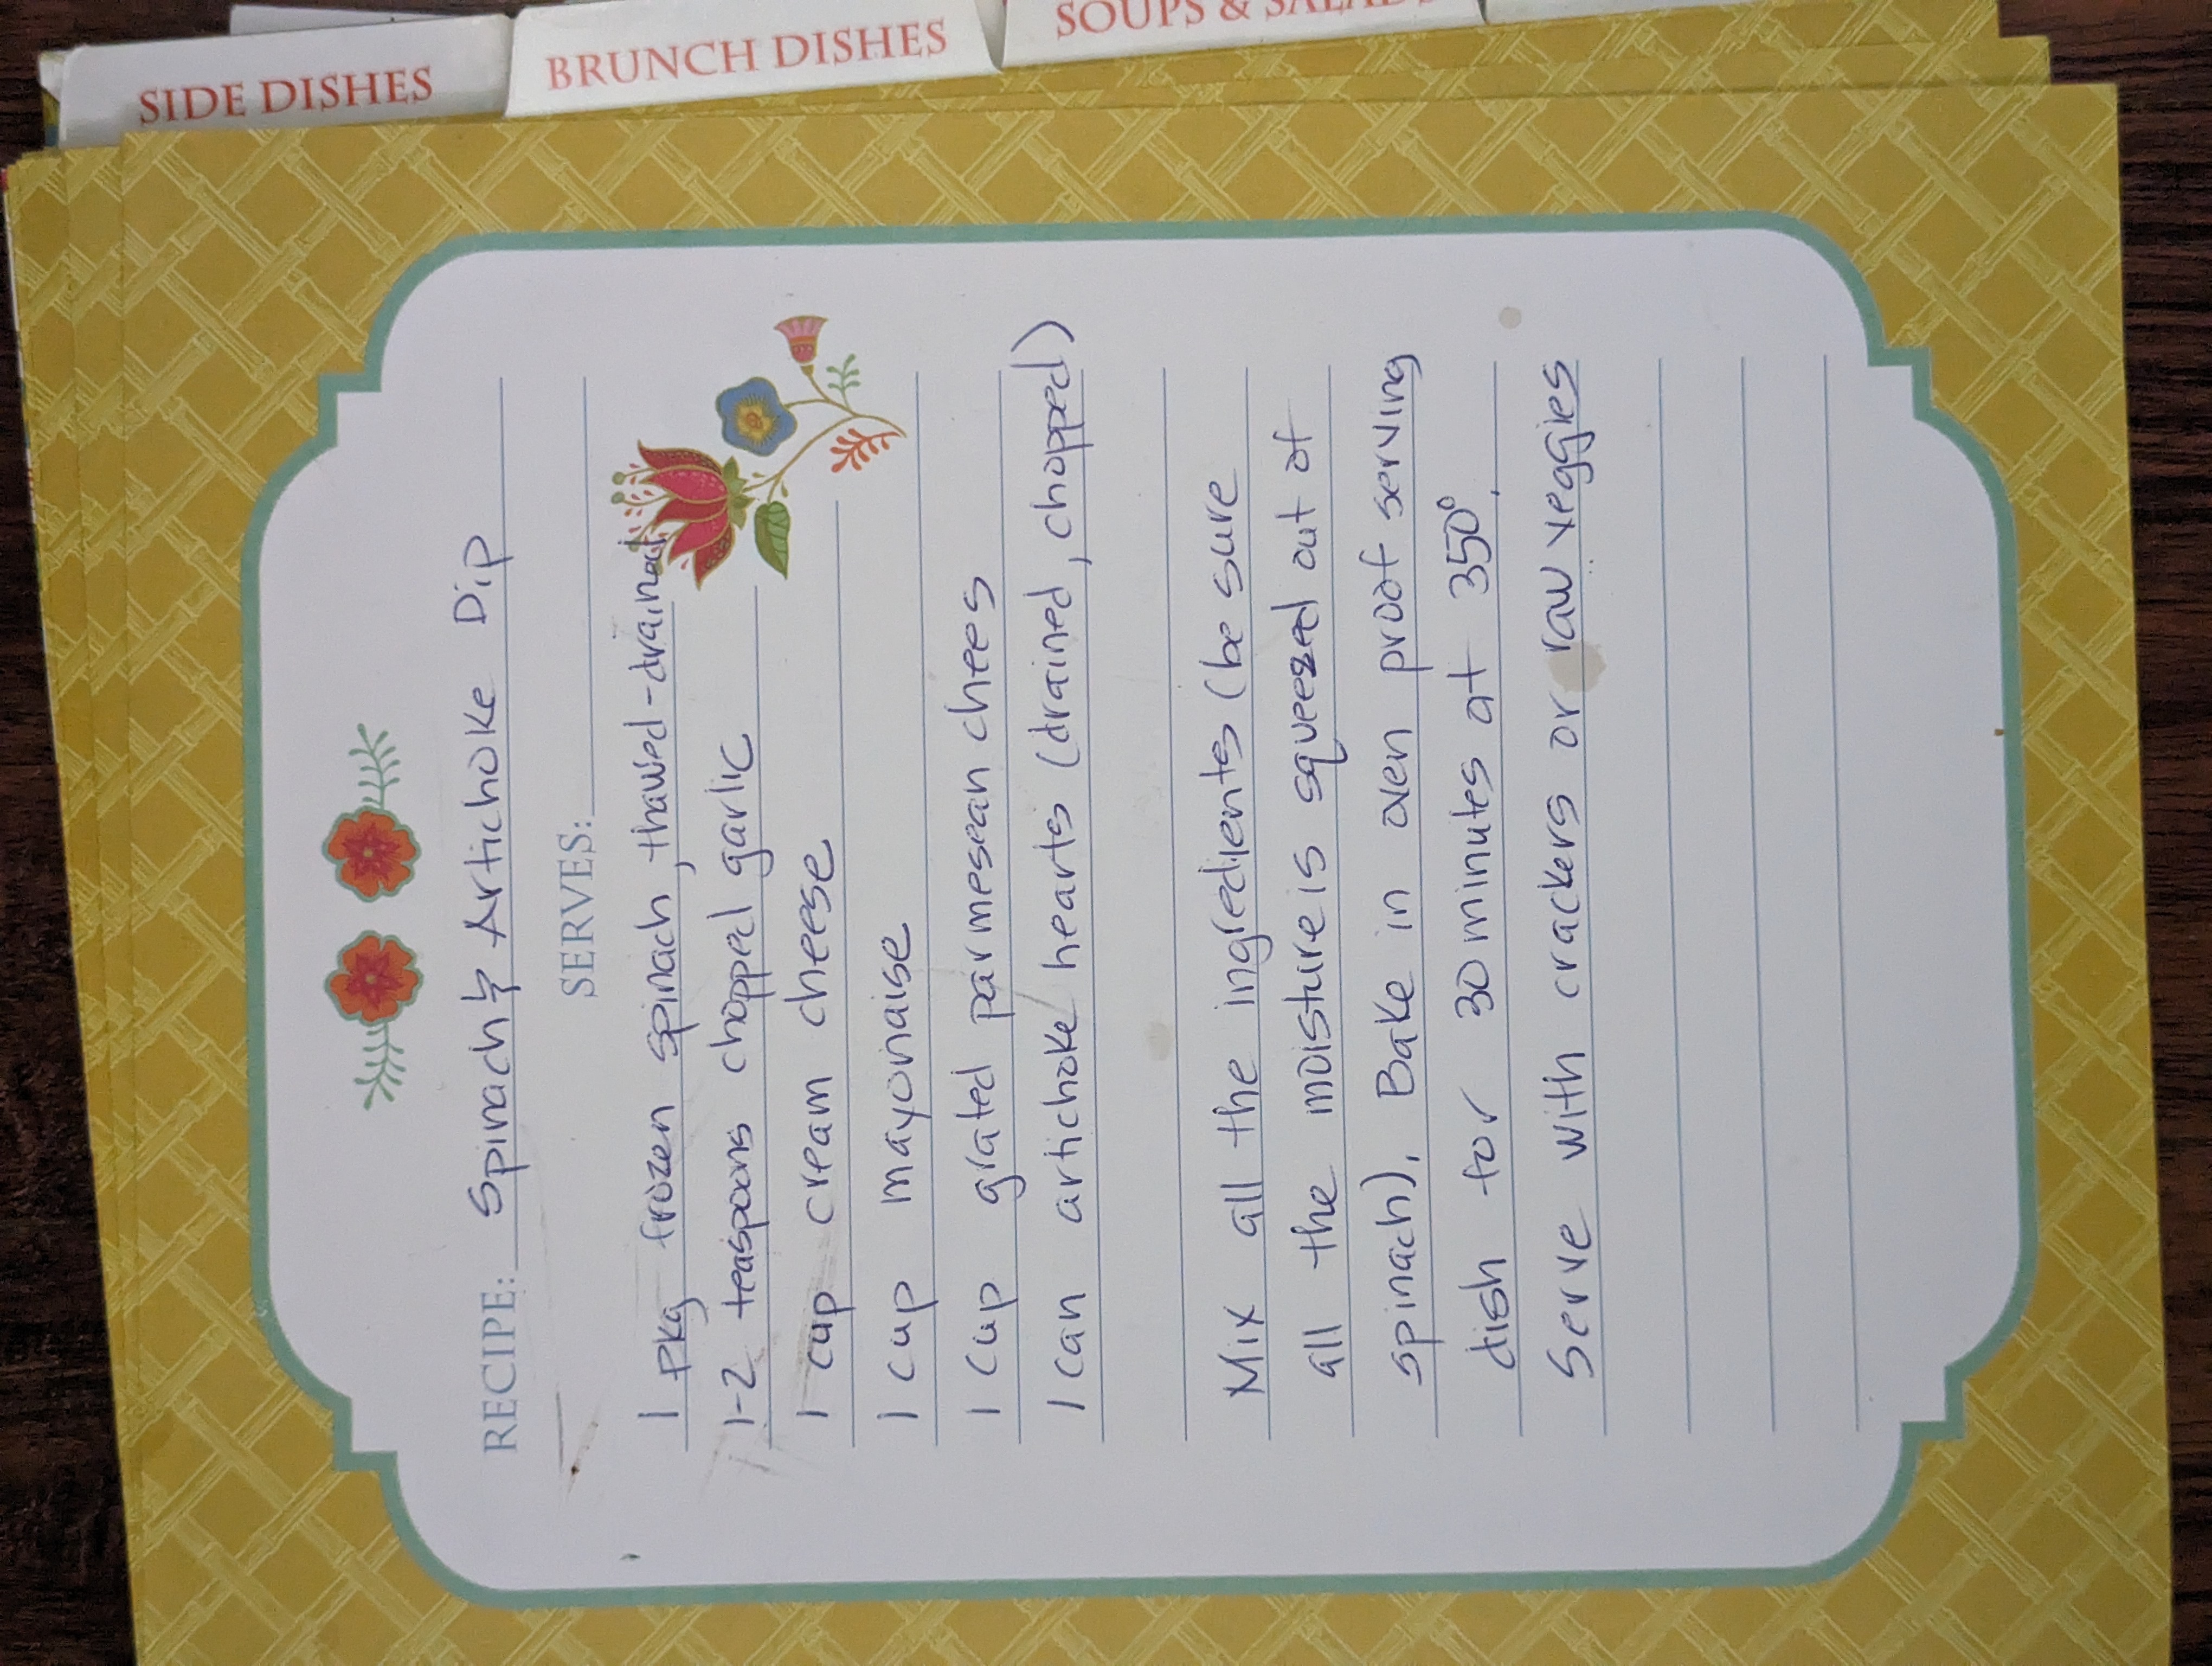 SIDE DISHES
BRUNCH DISHES
SOUPS & SALADS
RECIPE: Spinach & Artichoke Dip
SERVES:
1 pkg frozen spinach, thawed-drained
1-2 teaspoons chopped garlic
1 cup cream cheese
1 cup mayonaise
1 cup grated parmesean chees
1 can artichoke hearts (drained, chopped)
Mix all the ingredients (be sure
all the moisture is squeezed out of
spinach). Bake in oven proof serving
dish for 30 minutes at 350°.
Serve with crackers or raw veggies